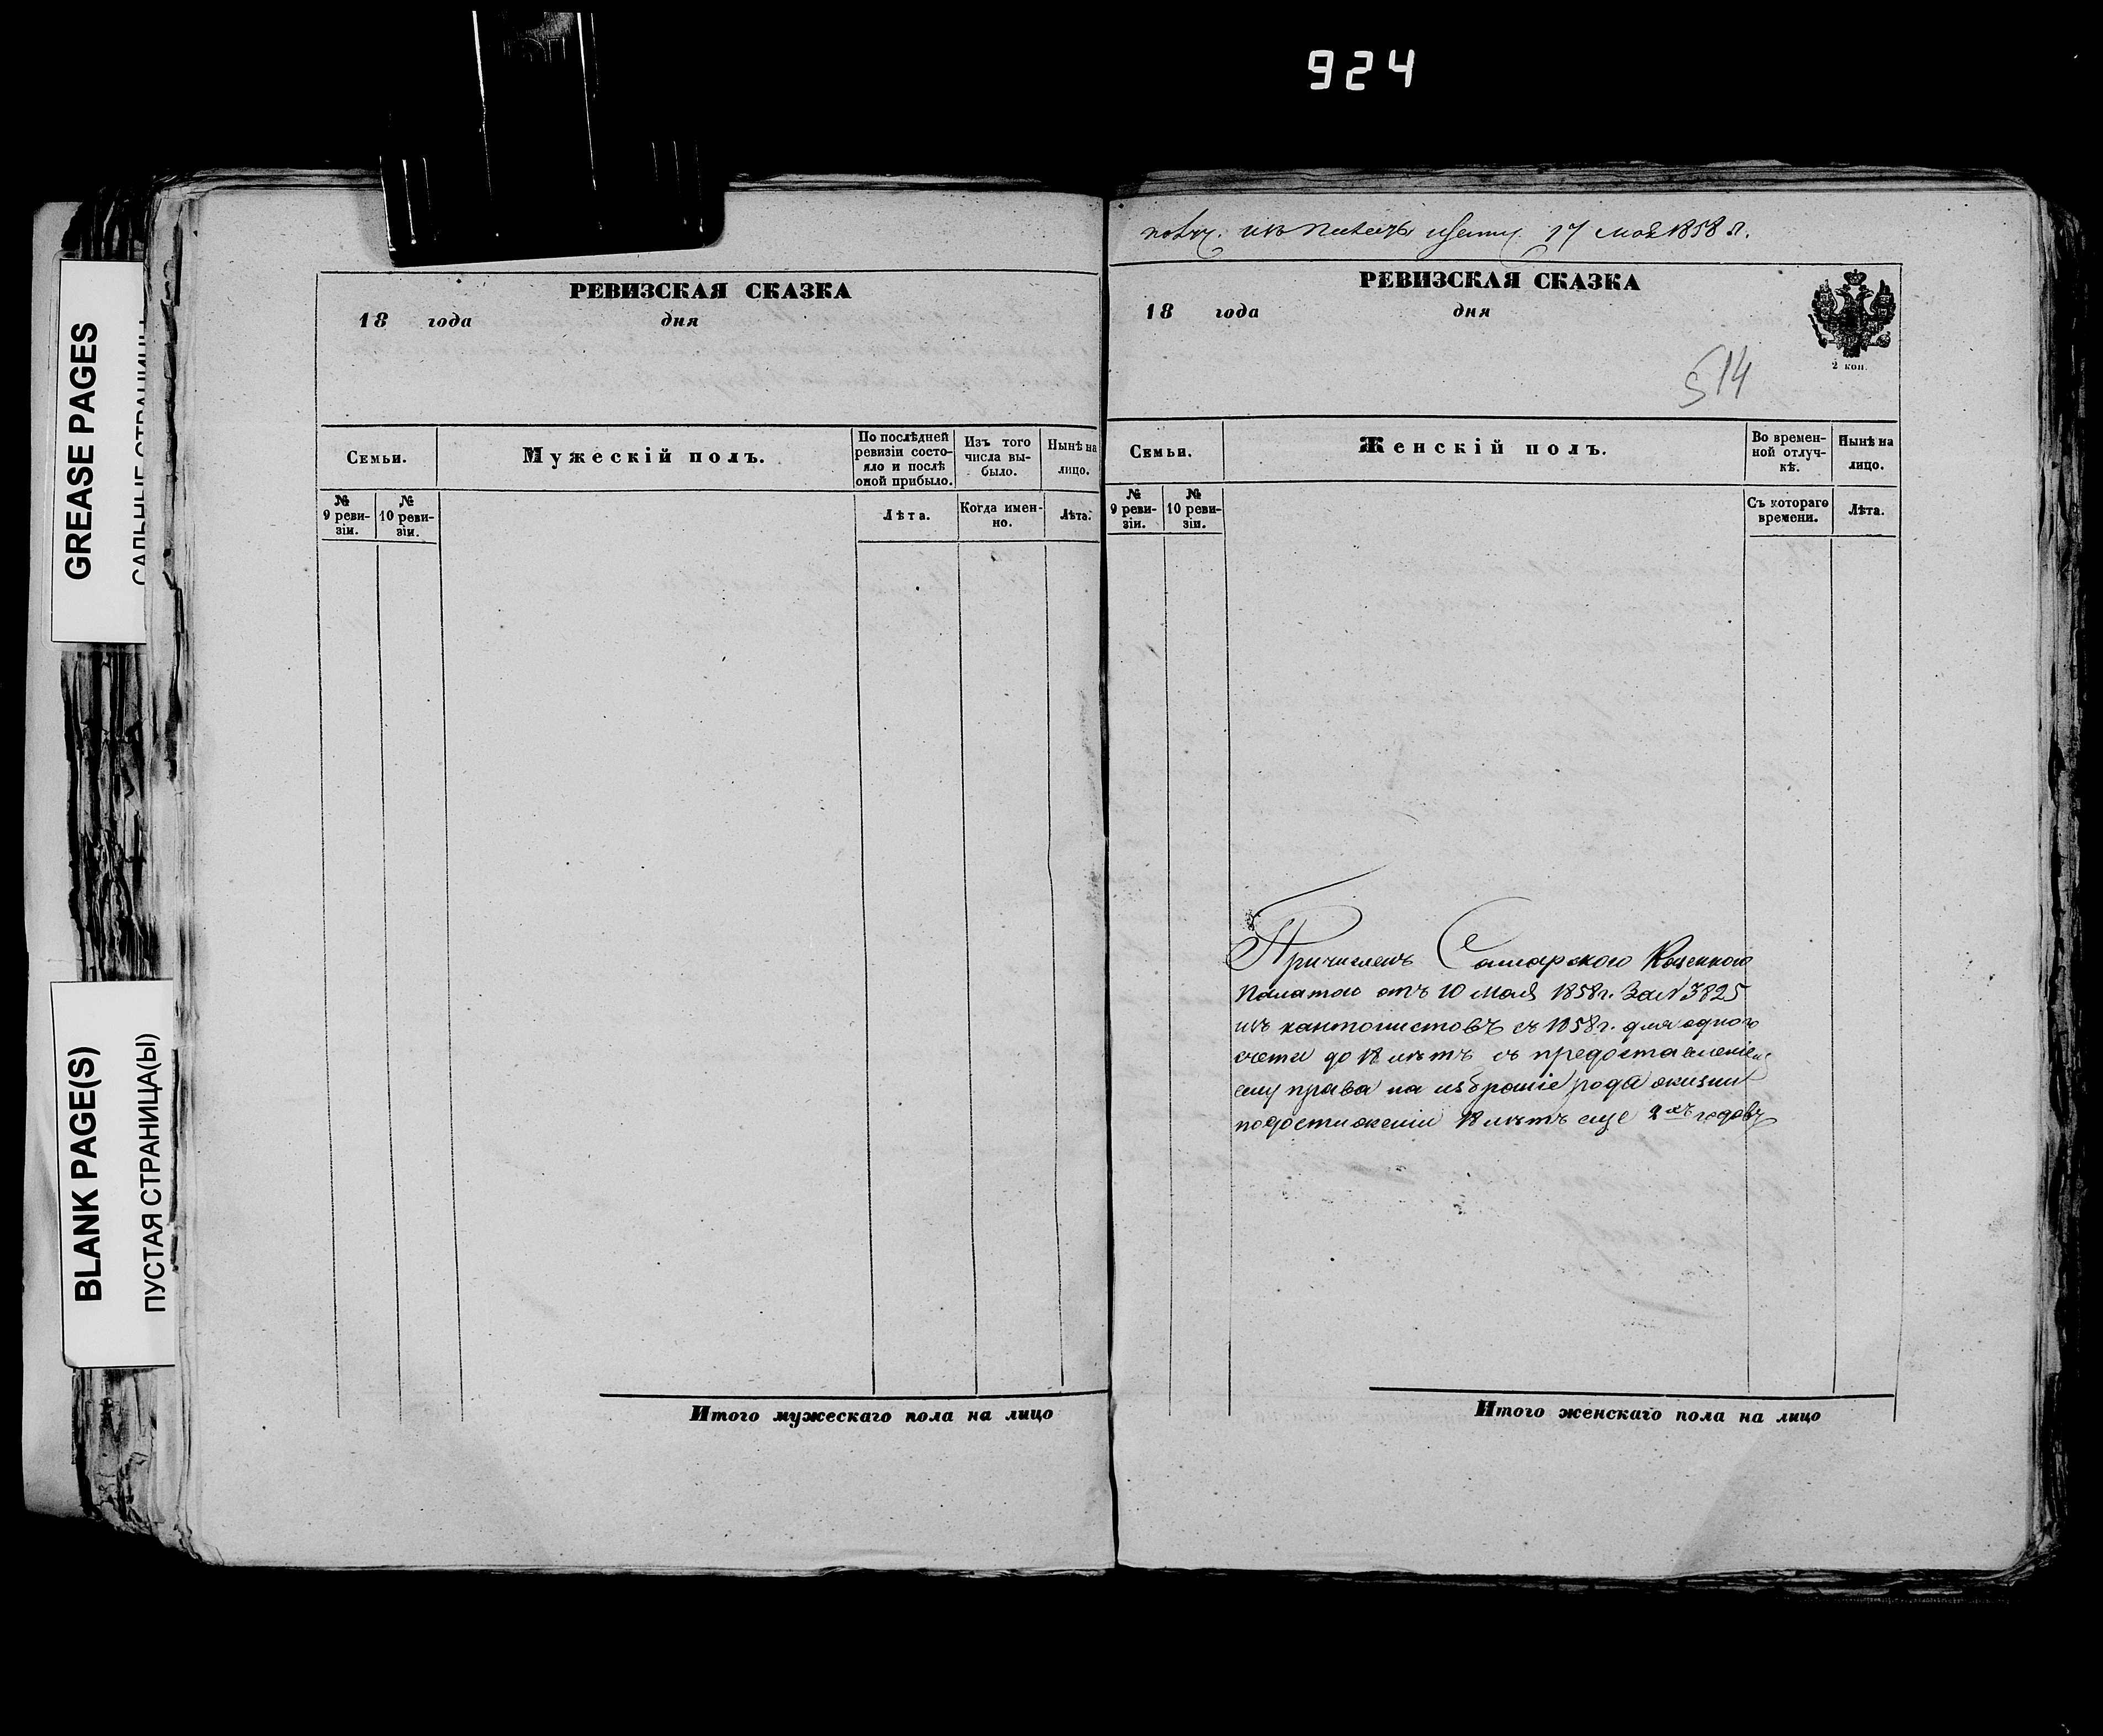 924
GREASE PAGES
САЛЬНЫЕ СТРАНИЦЫ
BLANK PAGE(S)
ПУСТАЯ СТРАНИЦА(Ы)
РЕВИЗСКАЯ СКАЗКА
18 года дня
Семьи.
Мужескій полъ.
По послѣдней ревизіи состояло и послѣ оной прибыло.
Изъ того числа выбыло.
Нынѣ на лицо.
№ 9 ревизіи.
№ 10 ревизіи.
Лѣта.
Когда именно.
Лѣта.
Итого мужескаго пола на лицо
17 мая 1858 г.
РЕВИЗСКАЯ СКАЗКА
18 года дня
2 коп.
514
Семьи.
Женскій полъ.
Во временной отлучкѣ.
Нынѣ на лицо.
№ 9 ревизіи.
№ 10 ревизіи.
Съ котораго времени.
Лѣта.
Причисленъ Самарского Казенного
Палатою отъ 10 Мая 1858 г. За № 3825
изъ кантонистовъ съ 1858 г. для одного
счета до 18 лѣтъ съ предоставленіемъ
ему права на избраніе рода жизни
по достиженіи 18 лѣтъ еще 2хъ годовъ
Итого женскаго пола на лицо